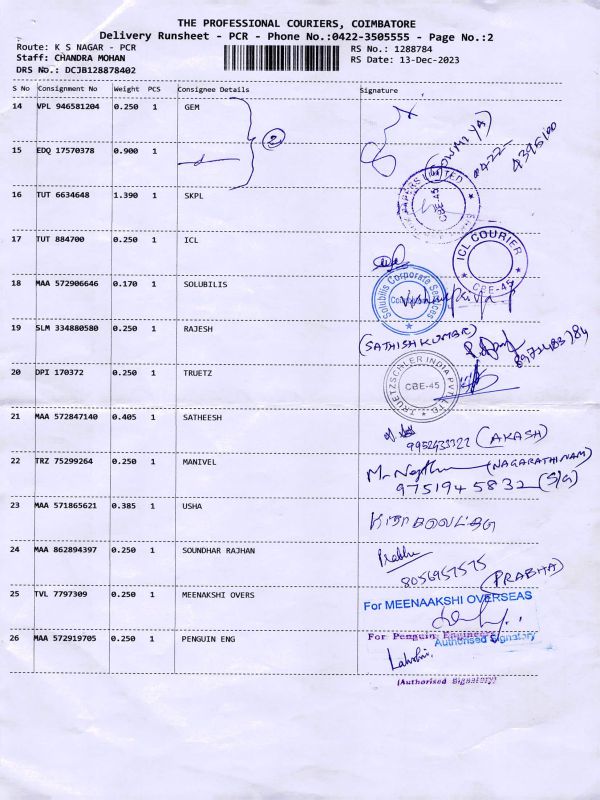 THE PROFESSIONAL COURIERS, COIMBATORE
Delivery Runsheet - PCR - Phone No.:0422-3505555 - Page No.:2
Route: K S NAGAR - PCR RS No.: 1288784
Staff: CHANDRA MOHAN RS Date: 13-Dec-2023
DRS No.: DCJB128878402
S No Consignment No Weight PCS Consignee Details Signature
14 VPL 946581204 0.250 1 GEM
2
(SOWMIYA)
0422
4395100
15 EDQ 17570378 0.900 1
16 TUT 6634648 1.390 1 SKPL
PAPERS LIMITED
CBE-45
17 TUT 884700 0.250 1 ICL
ICL COURIER
CBE-45
18 MAA 572906646 0.170 1 SOLUBILIS
Solubilis Corporate Services
19 SLM 334880580 0.250 1 RAJESH
(SATHISH KUMAR)
20 DPI 170372 0.250 1 TRUETZ
TRUETZSCHLER INDIA PVT. LTD.
CBE-45
21 MAA 572847140 0.405 1 SATHEESH
9952933322 (AKASH)
22 TRZ 75299264 0.250 1 MANIVEL
(NAGARATHINAM)
9751945832 (S/G)
23 MAA 571865621 0.385 1 USHA
24 MAA 862894397 0.250 1 SOUNDHAR RAJHAN
Prabha
8056957575
(PRABHA)
25 TVL 7797309 0.250 1 MEENAKSHI OVERS
For MEENAAKSHI OVERSEAS
Authorised Signatory
26 MAA 572919705 0.250 1 PENGUIN ENG
For Penguin Engineers
Lakshmi.
(Authorised Signatory)